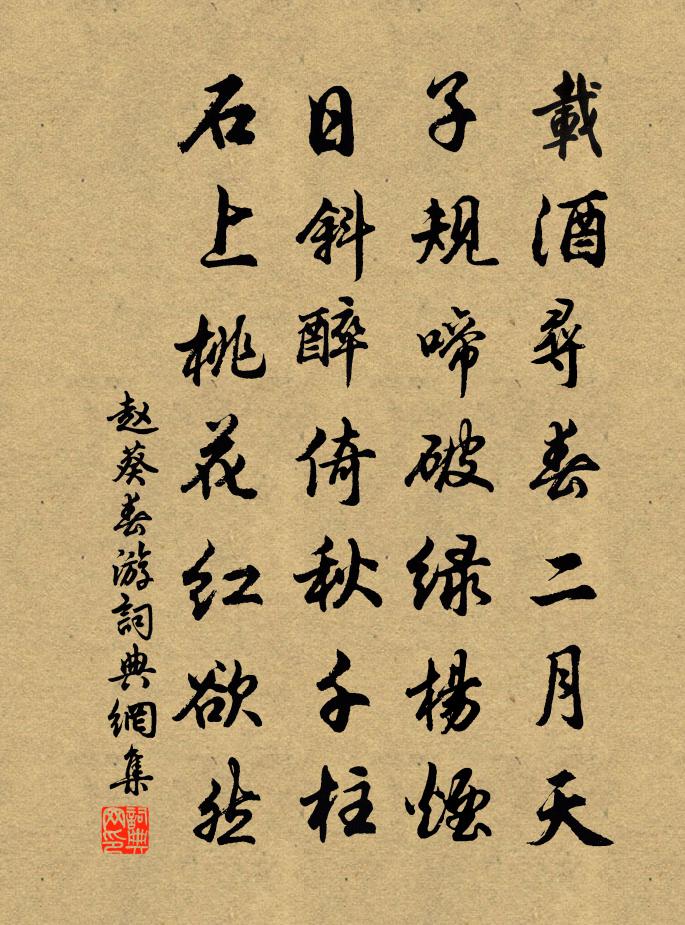 載酒尋春二月天
子規啼破緑楊煙
日斜醉倚秋千柱
石上桃花红欲然
赵葵春游詞典網集
詞典網印